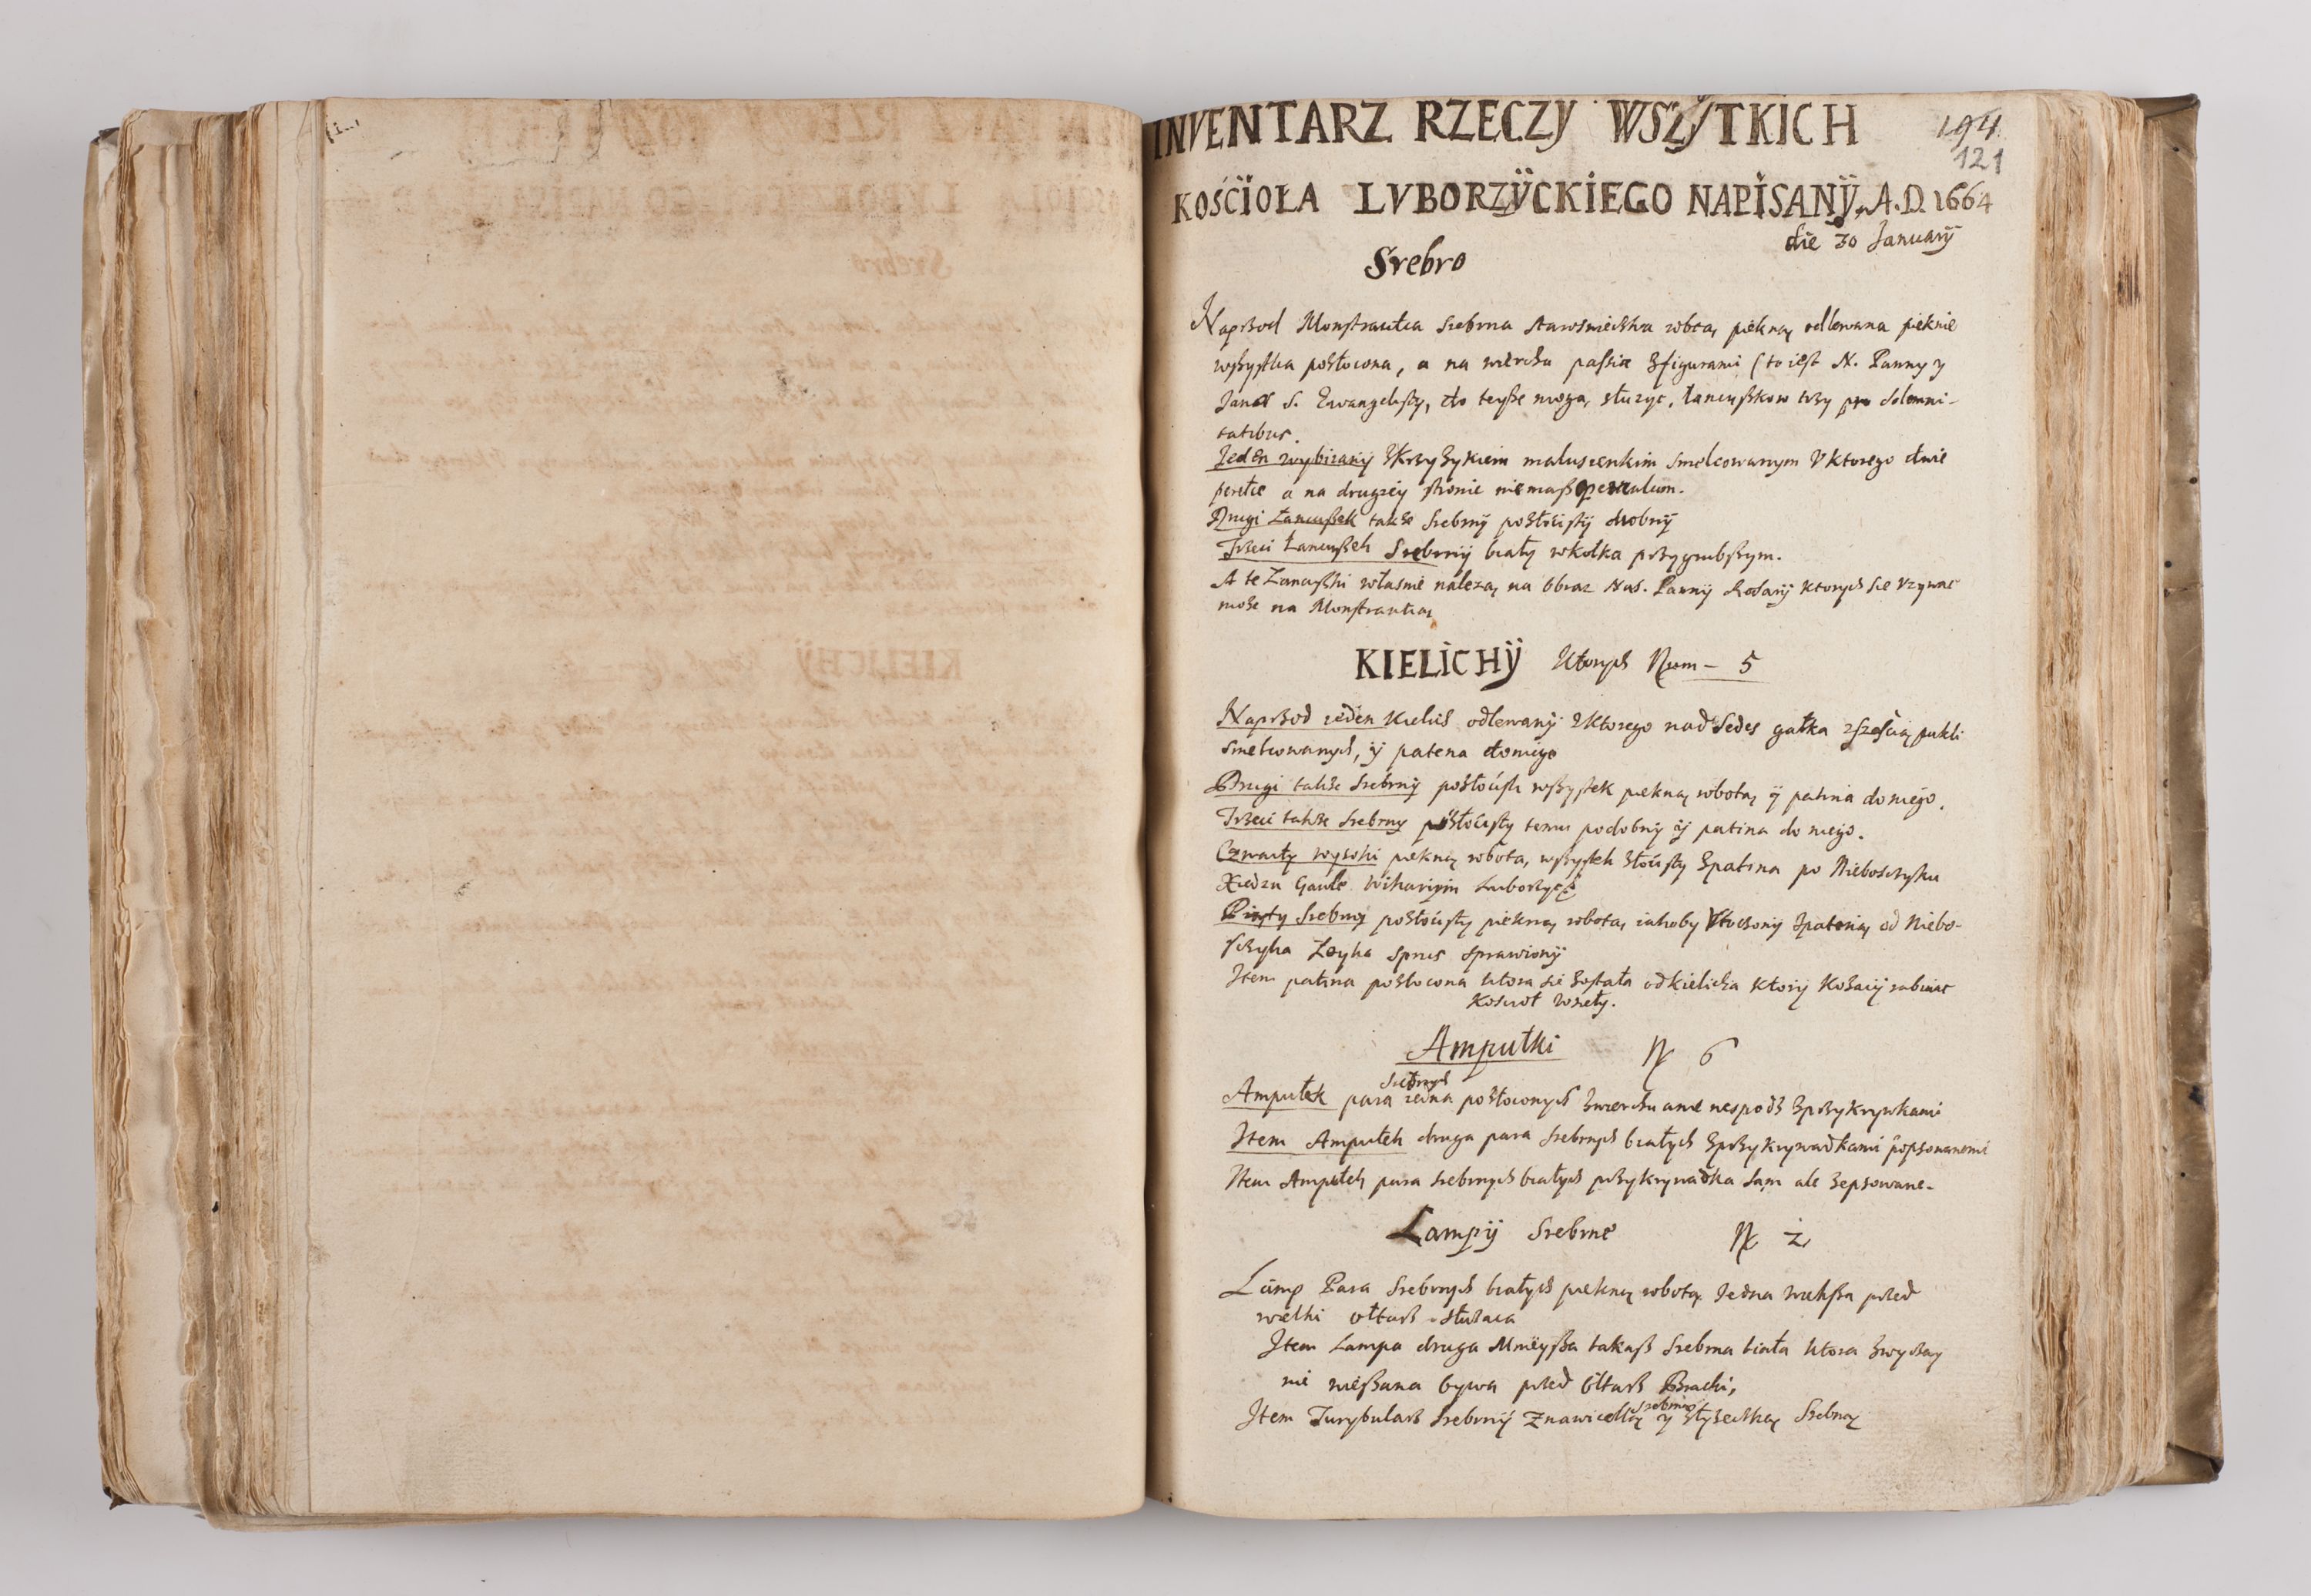 INVENTARZ RZECZY WSZYTKICH
194
121
KOŚCÏOŁA LVBORZŸCKIEGO NAPÏSANŸ, A.D. 1664
die 30 Januarÿ
Srebro
Naprzod Monstrantia srebrna staroswiecka robotą piękną odlewana pieknie
wszystka pozłocona, a na wierchu passia z figurami (to iest N. Panny y
Jana S. Ewangelisty, do teysze mogą służyc, łancuszkow trzy pro solemni-
tatibus.
Jeden wybiranÿ zkrzyzykiem maluszenkim smelcowanym v ktorego dwie
perełce a na drugzey stronie niemasz
Drugi Łancuszek takze srebrnÿ pozłocistÿ drobnÿ
Trzeci Łancuszek Srebrnÿ białÿ wkołka przygrubszym.
A te Łancuszki własnie należą na Obraz Nas. Pannÿ Rosarÿ ktorych sie vzywac
może na Monstrantią
KIELÏCHŸ ktorych Num – 5
Naprzod ieden kielich odlewanÿ v ktorego nad Sedes gałka z szescią pukli
smelcowanych, ÿ patena do niego
Drugi takze srebrnÿ pozłocisti wszystek piekną robotą ÿ patina do niego.
Trzeci takze srebrny pozłocisty temu podobnÿ ÿ patina do niego.
Czwarty wysoki piekną robotą, wszystek złocisty z patiną po Nieboszczyku
Xiedzu Gawle
Piąty Srebrnÿ pozłocisty piekną robotą iakoby z pateną od Niebo-
szczyka sprawionÿ
Item patina pozłocona ktora sie została od kielicha ktorÿ Kozacÿ rabuiąc
Koscioł wzieły.
Ampułki N 6
srebrnych
Ampułek para iedna pozłoconych zwierchu ale nespodz z przykrywkami
Item Ampułek druga para srebrnych białych z przykrywadkami popsowanemi
Item Ampułek para srebrnych białych przykrywadka są ale zepsowane-
Lampÿ Srebrne N 2
Lamp Para Srebrnych białych piekną robotą Jedna wieksza przed
wielki ołtarz słuzaca
Item Lampa druga Mnieysza takasz srebrna biała ktora zwyczay
nie wieszana bywa przed Ołtarz Bracki,
srebrną
Item Turybularz srebrnÿ z nawiedką y z łyzeczką Srebną